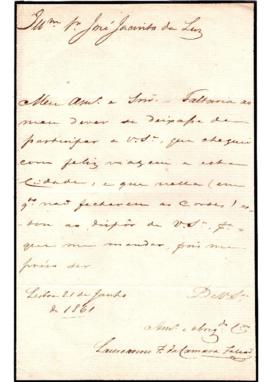 Illmo Sr. José Jacinto da Luz
Meu Amo. e Snr. Faltaria ao
meu dever se deixasse de
participar a V.Sa. que cheguei
com feliz viagem a esta
Cidade, e que nella (em
qto não fecharem as Cortes)
estou ao dispôr de V.Sa. pa.
que me mandar, pois me
préso ser
Lisboa 21 de Junho
de 1861
De V.Sa.
Amo. e Obrigdo.
da Camara